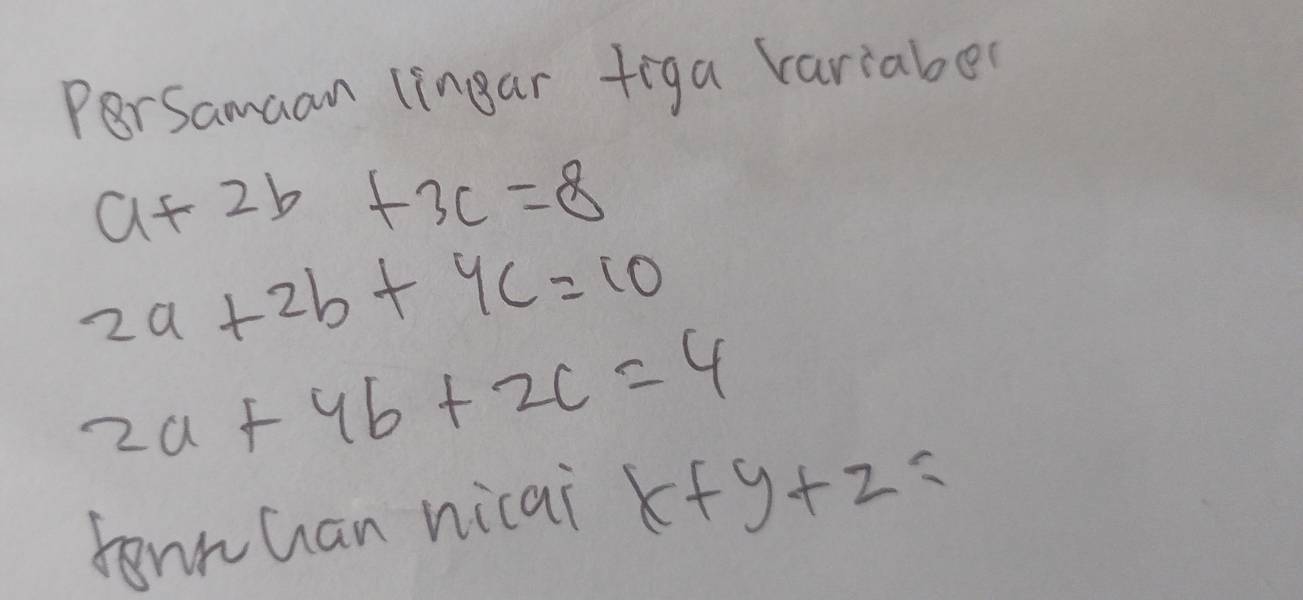 Persamaan linear tiga variabel
a + 2b + 3c = 8
2a + 2b + 4c = 10
2a + 4b + 2c = 4
tentukan nilai x + y + z =